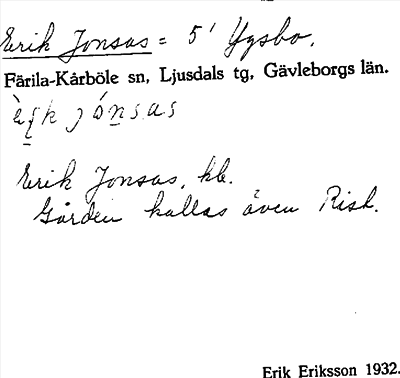 Erik Jonsas = 5' Ygsbo.
Färila-Kårböle sn, Ljusdals tg, Gävleborgs län.
Erik Jonsas, kb.
Gården kallas även Risk.
Erik Eriksson 1932.